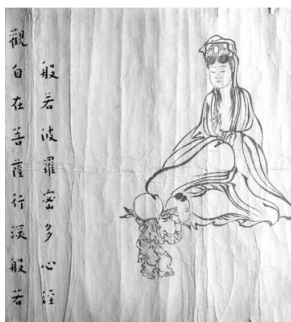 般若波羅密多心經
觀自在菩薩行深般若